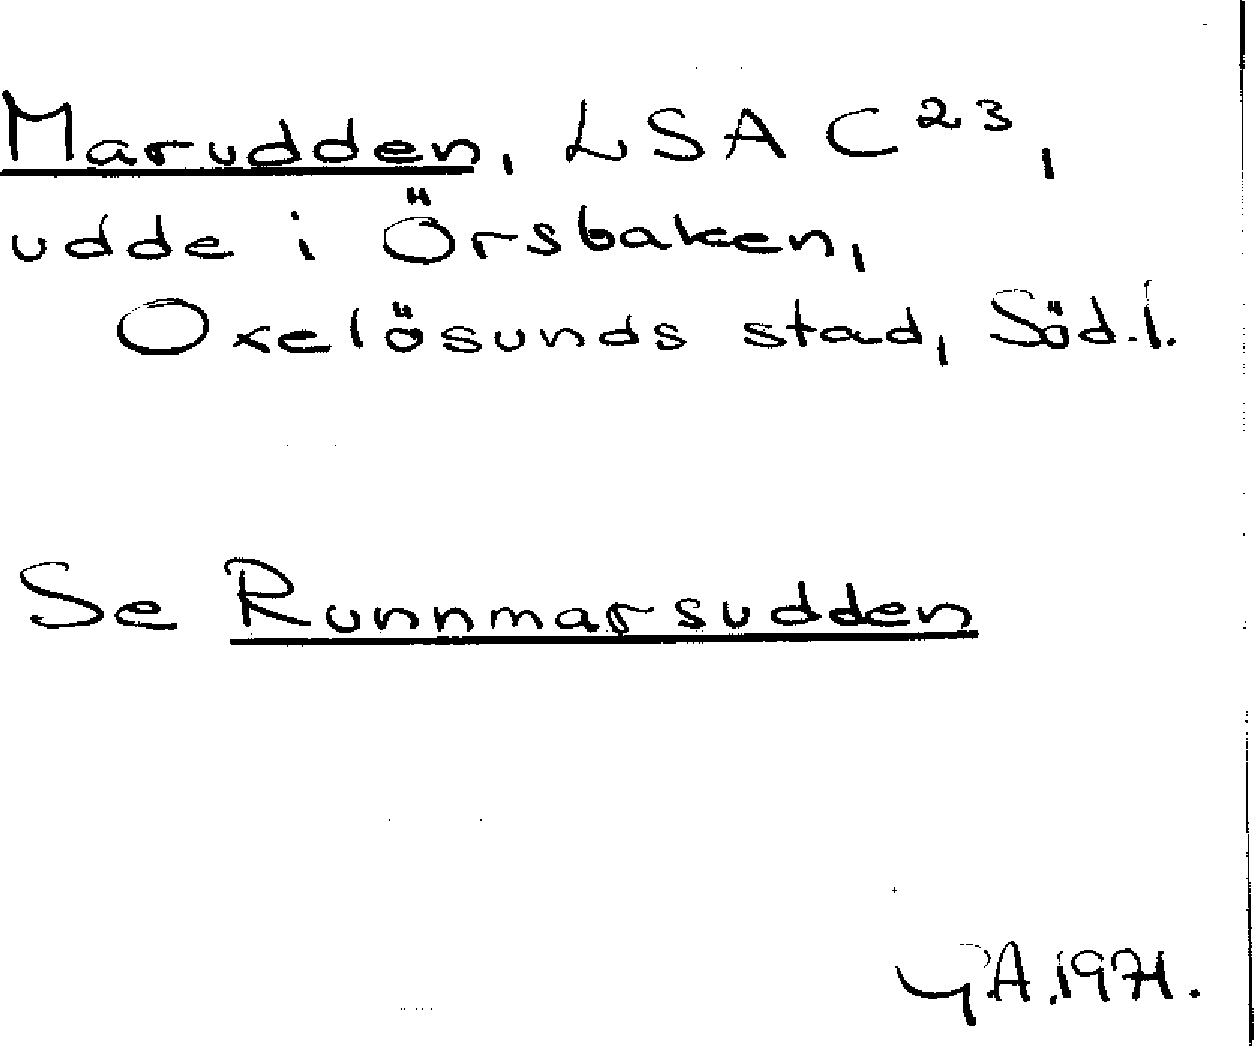 Marudden, LSA C 23,
udde i Örsbaken,
Oxelösunds stad, Söd.l.
Se Runnmarsudden
G.A. 1971.